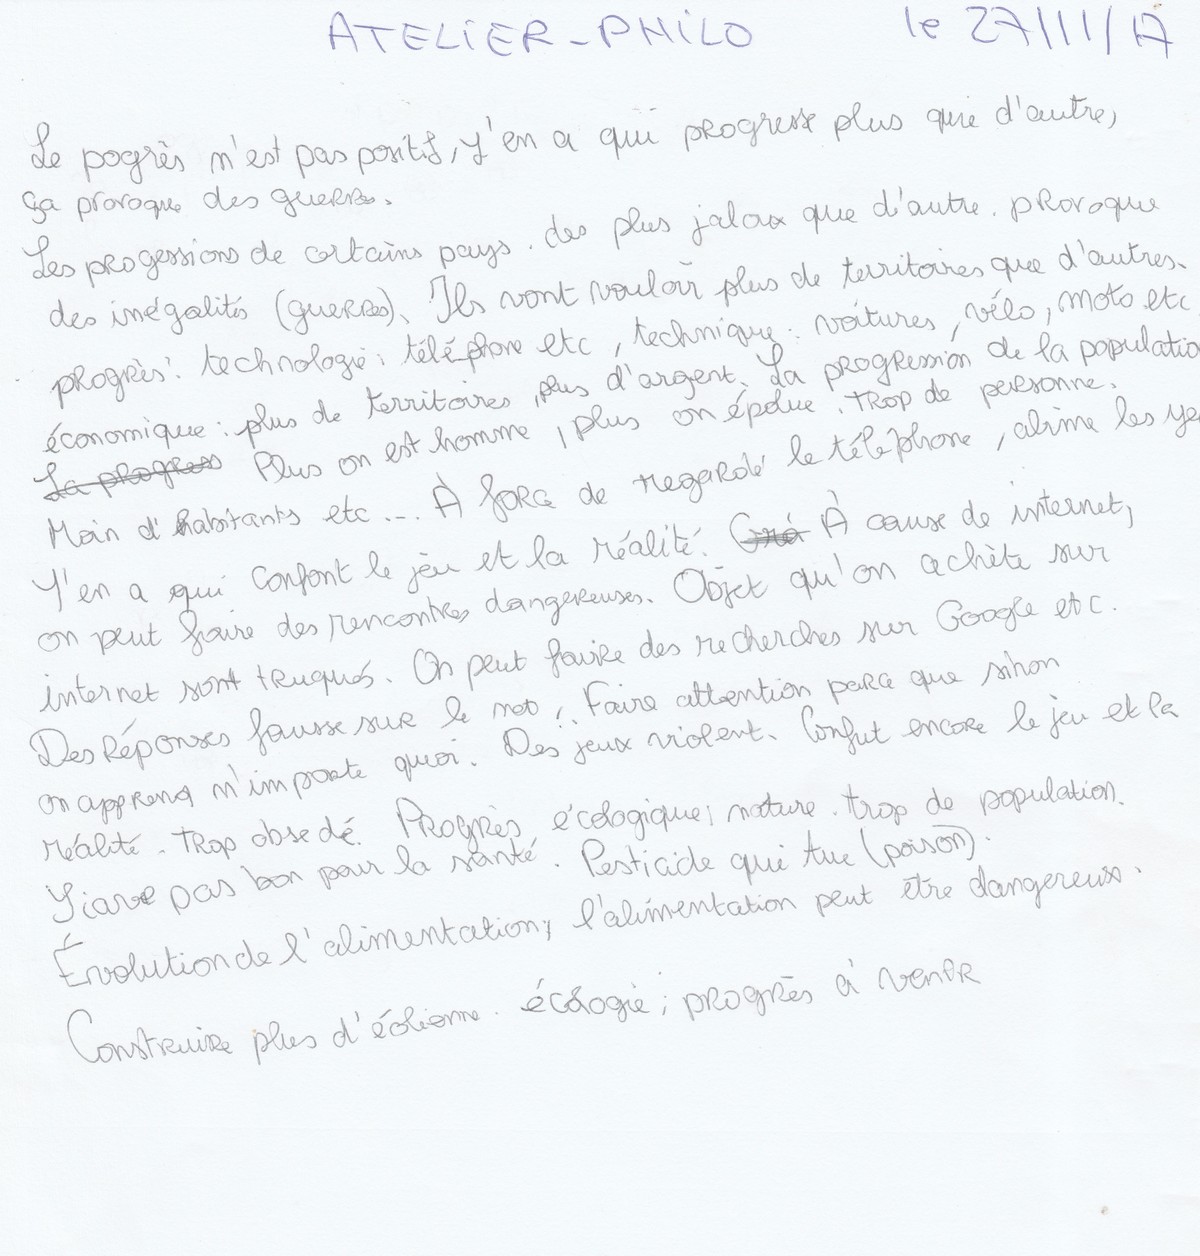 ATELIER-PHILO le 27/11/17
Le pogrès n'est pas positif, y'en a qui progresse plus que d'autre,
ça provoque des guerres.
Les progessions de certains pays. des plus jaloux que d'autre. provoque
des inégalités (guerres). Ils vont vouloir plus de territoires que d'autres.
progrès: technologie: téléphone etc, technique: voitures, vélo, moto etc
économique: plus de territoires, plus d'argent. La progression de la populatio
La progress Plus on est homme, plus on épolue. Trop de personne.
Moin d'habitants etc... À force de regardé le téléphone, abime les ye
Y'en a qui confont le jeu et la réalité. Gra À cause de internet,
on peut faire des rencontres dangereuses. Objet qu'on achète sur
internet sont truqués. On peut faire des recherches sur Google etc.
Des Réponses fausse sur le net!. Faire attention parce que sinon
on apprend n'importe quoi. Des jeux violent. Confut encore le jeu et la
réalité. Trop obsedé. Progrès écologique; nature. trop de population.
pas bon pour la santé. Pesticide qui tue (poison).
Évolution de l'alimentation; l'alimentation peut être dangereux.
Construire plus d'éolienne. écologie; progrès à venir